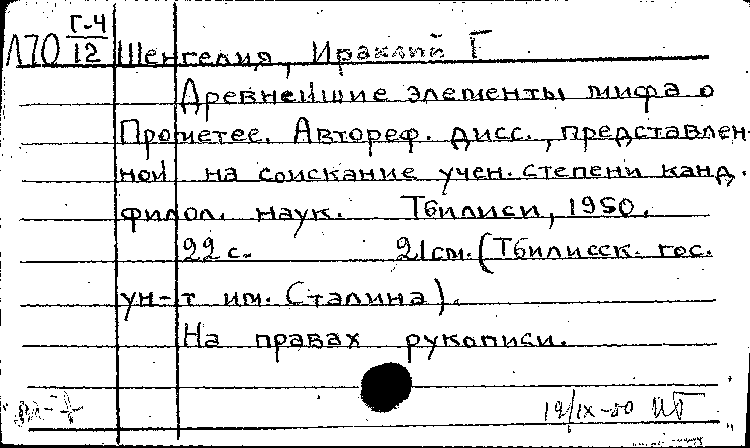 Л70 Г-4/12 Шенгелия, Ираклий Г
Древнейшие элементы мифа о
Прометее. Автореф. дисс., представлен-
ной на соискание учен. степени канд.
филол. наук. Тбилиси, 1950.
22 с. 21 см. (Тбилисск. гос.
ун-т им. Сталина).
На правах рукописи.
19/IX-50